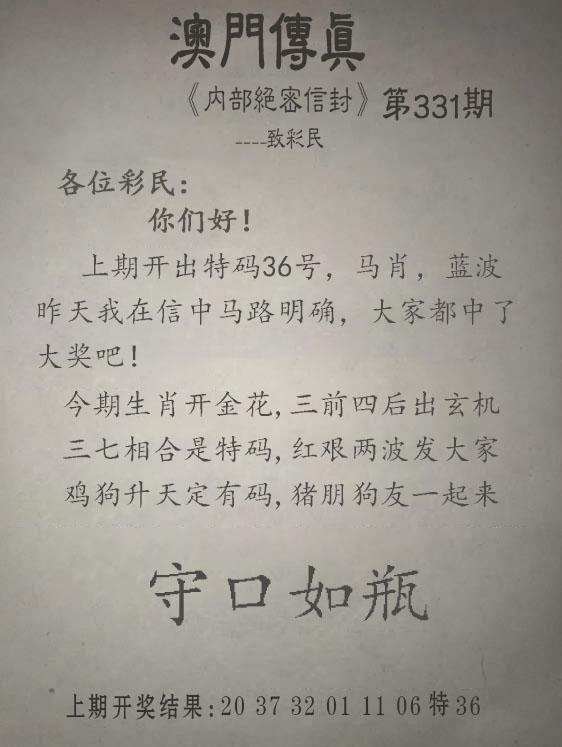 澳門傳眞
《内部絕密信封》第331期
----致彩民
各位彩民：
你们好！
上期开出特码36号，马肖，蓝波
昨天我在信中马路明确，大家都中了
大奖吧！
今期生肖开金花,三前四后出玄机
三七相合是特码,红艰两波发大家
鸡狗升天定有码,猪朋狗友一起来
守口如瓶
上期开奖结果:20 37 32 01 11 06 特36